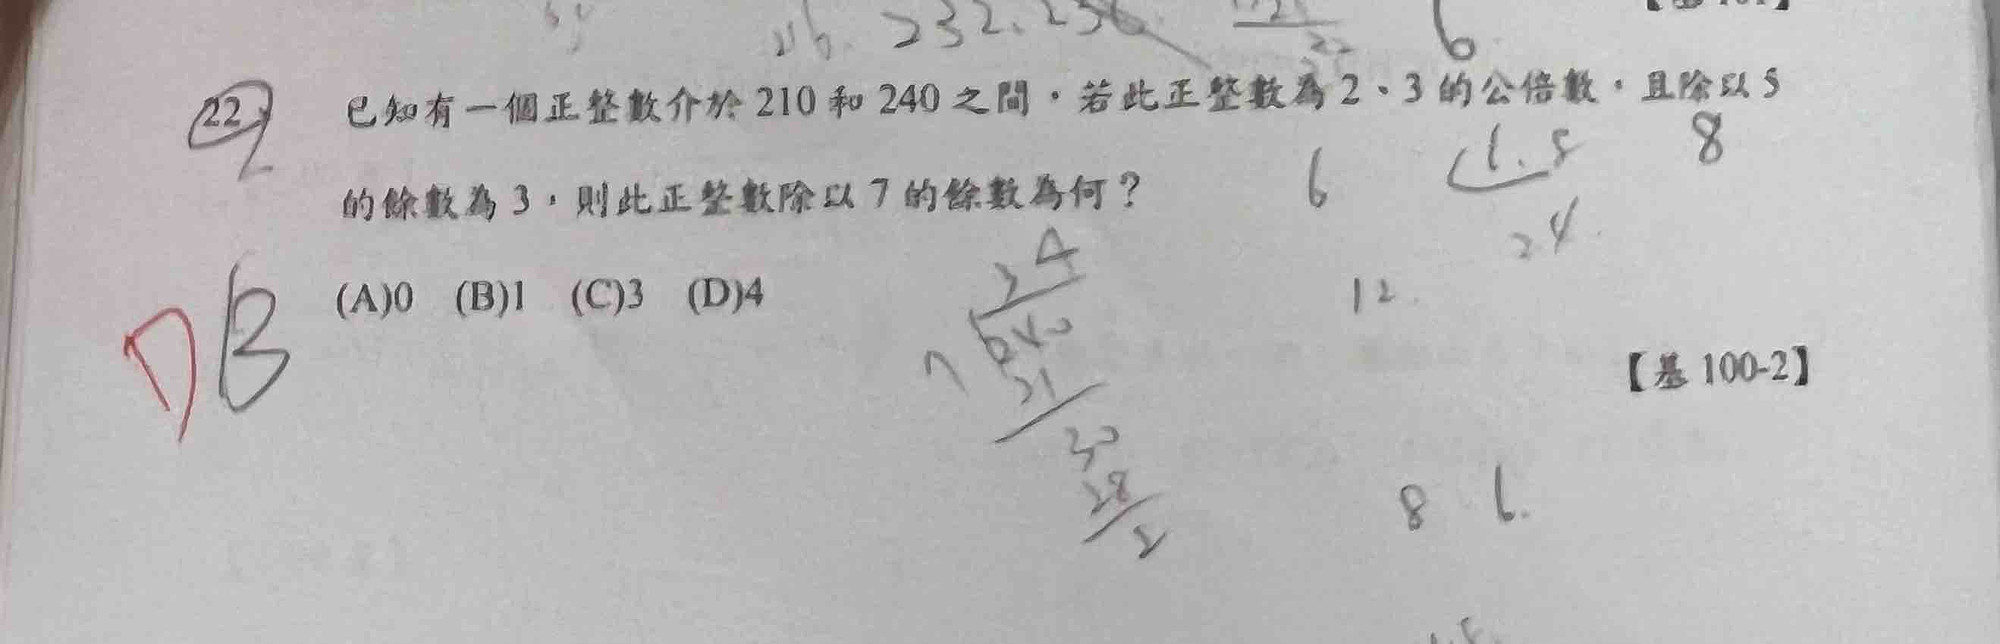 232.236
6
22. 已知有一個正整數介於 210 和 240 之間，若此正整數為 2、3 的公倍數，且除以 5
的餘數為 3，則此正整數除以 7 的餘數為何？
6 1.5 8
24.
(A)0 (B)1 (C)3 (D)4
B
34
7 240
21
30
28
2
12.
【基 100-2】
8 6.